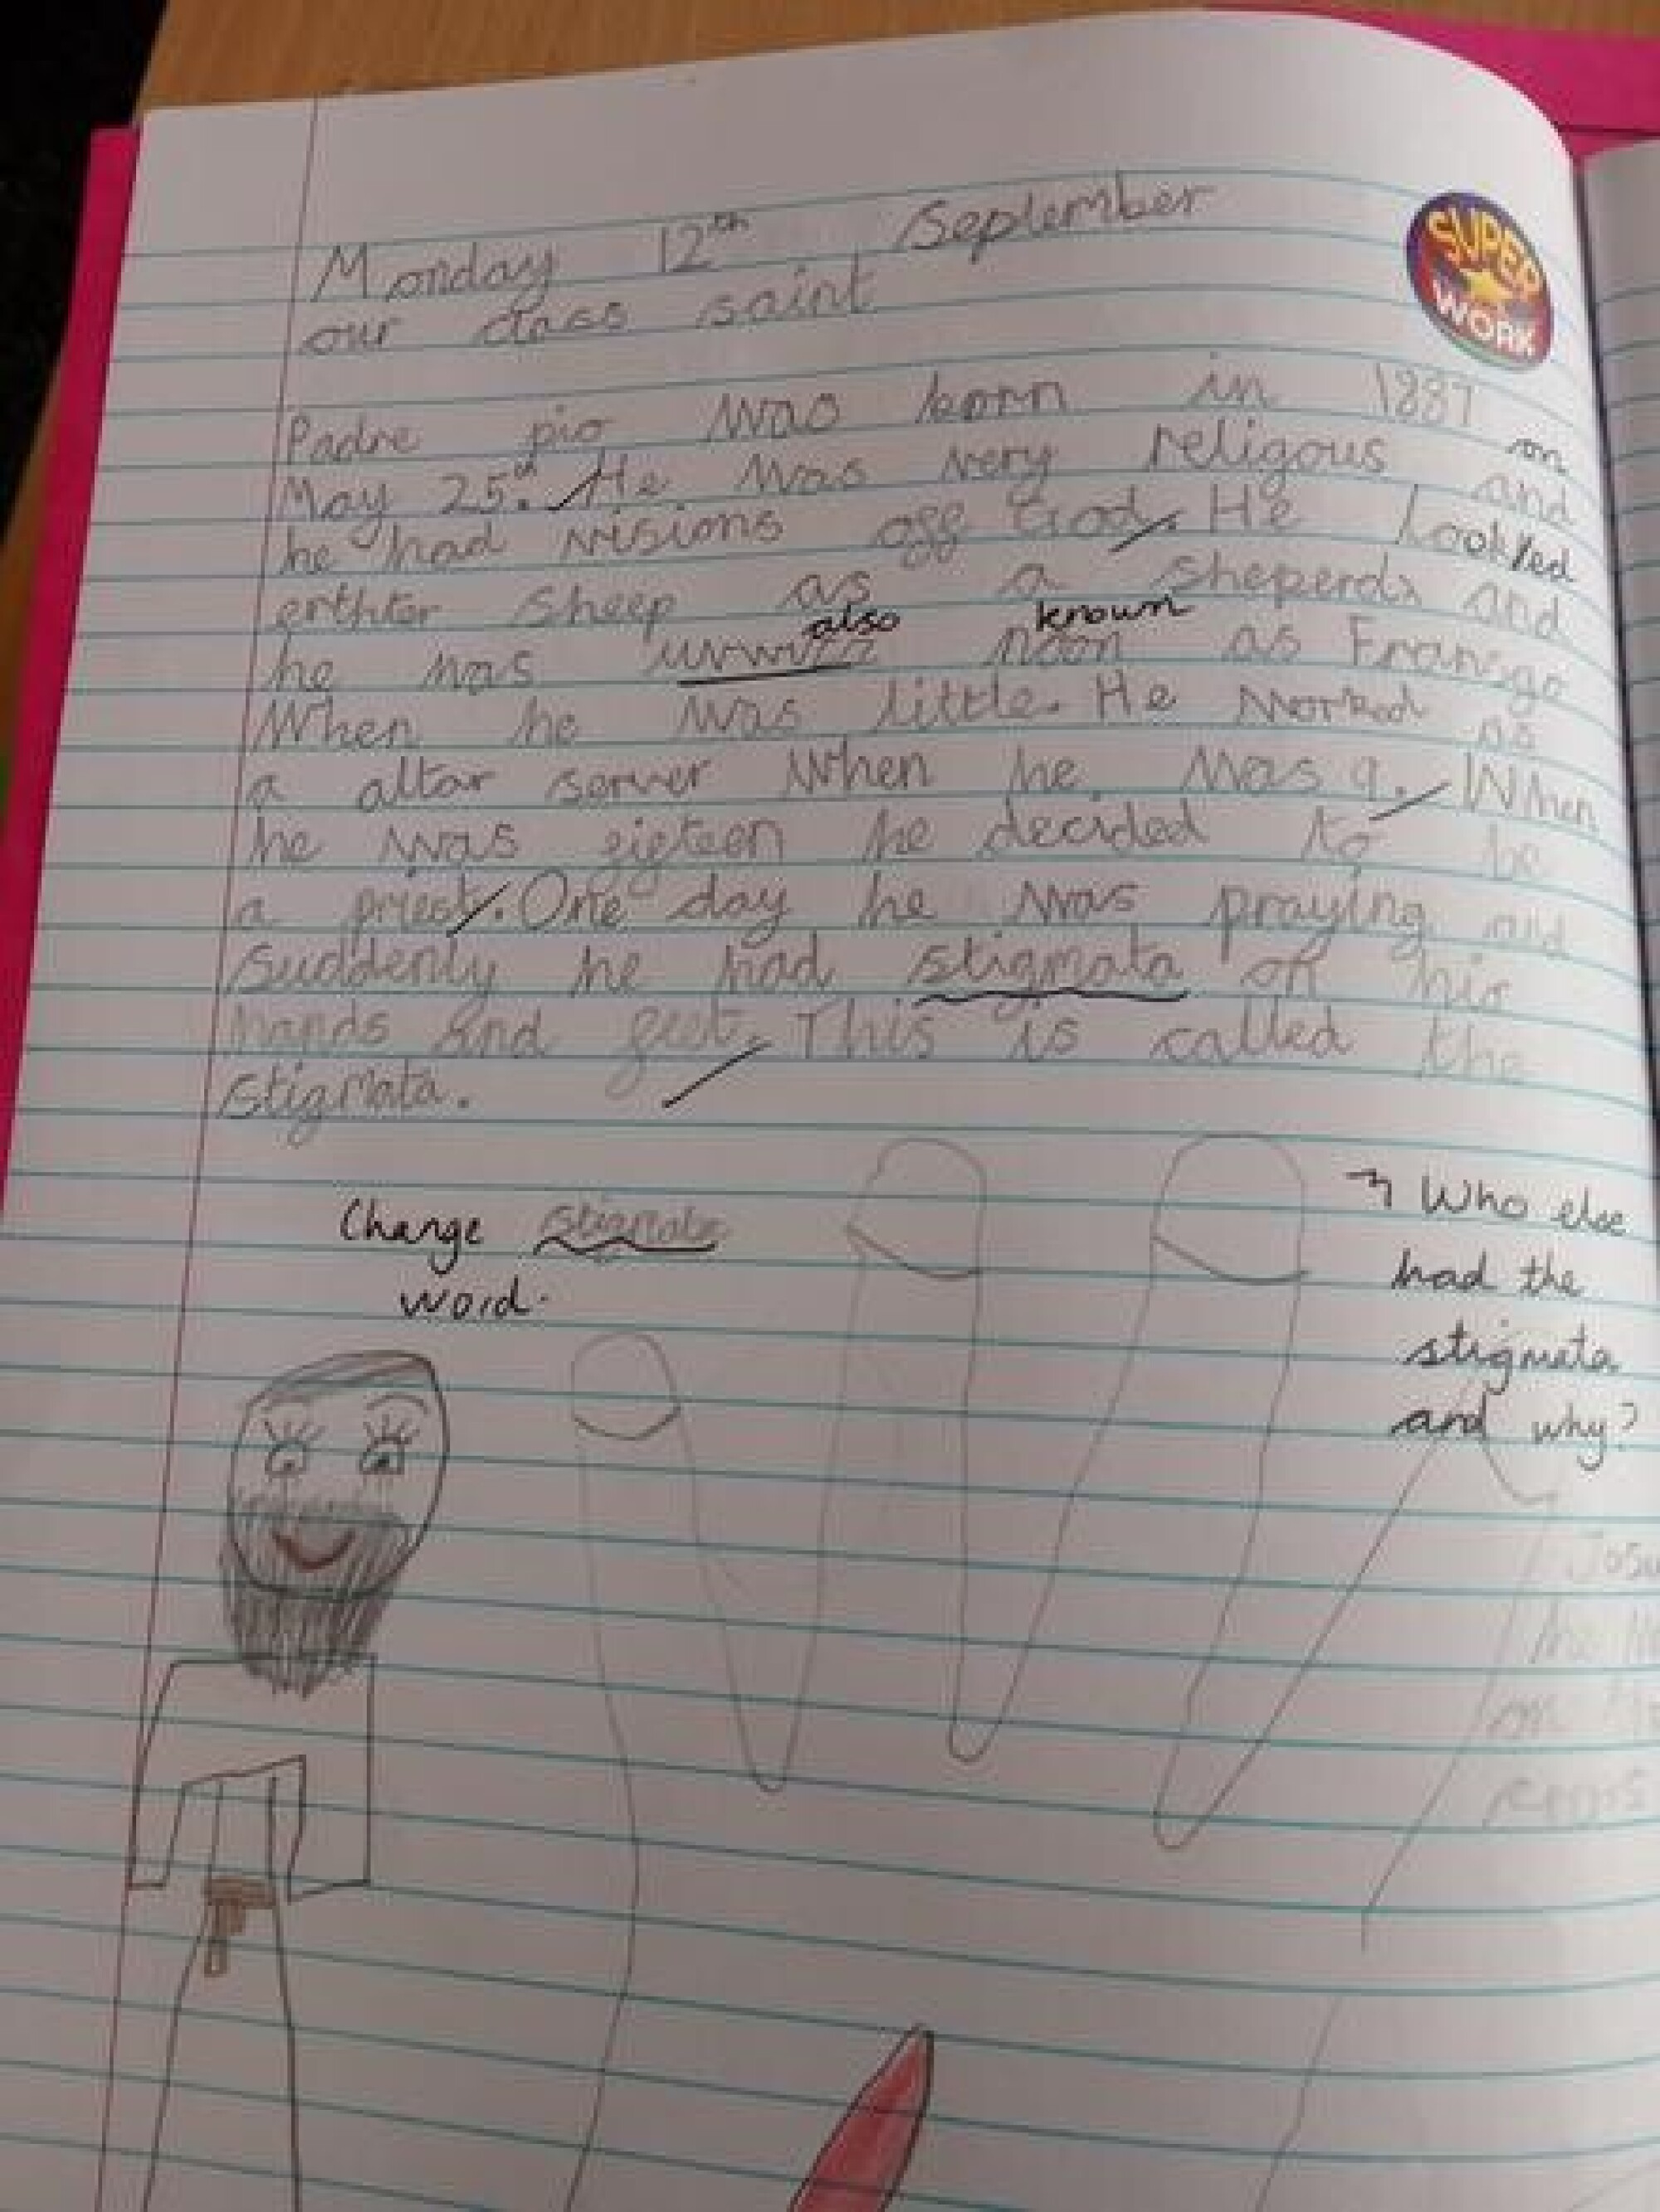 Monday 12th September
our class saint
SUPER
WORK
Padre pio was born in 1887 on
May 25th. He was very religous and
he had visions off God. He Looked
erthter sheep as a sheperd and
also known
he was noon as Fransgo
When he was little. He worked as
a altar server When he was 9. When
he was eigteen he decided to be
a priest. One day he was praying and
suddenly he had stigmata on his
hands and feet. This is called the
stigmata.
Change stigmata
word.
Who else
had the
stigmata
and why?